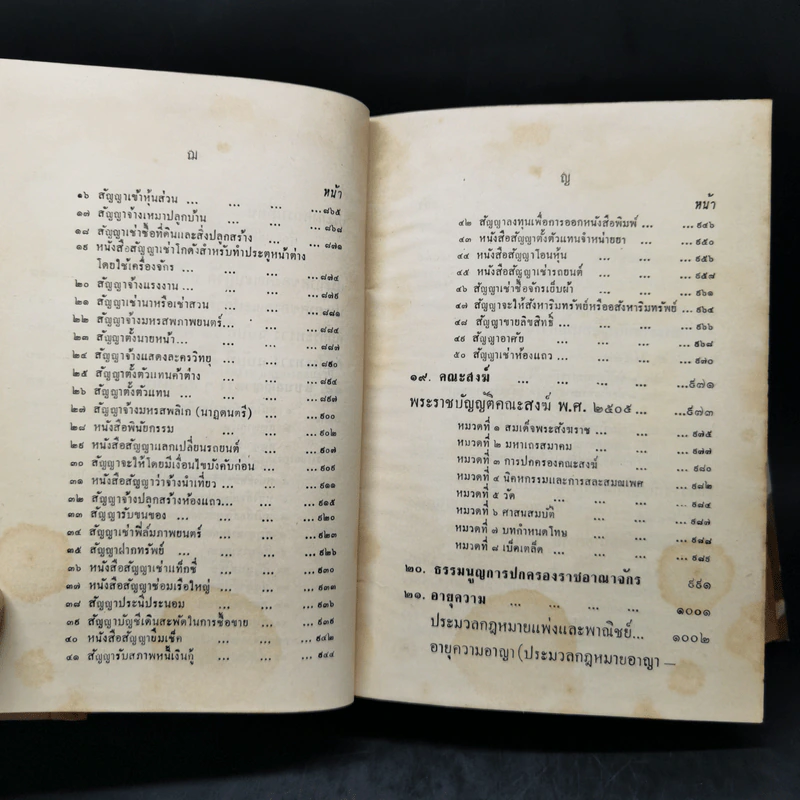 ฌ
หน้า
๑๖ สัญญาเข้าหุ้นส่วน ... ... ... ...๘๖๕
๑๗ สัญญาจ้างเหมาปลูกบ้าน ... ... ...๘๖๘
๑๘ สัญญาเช่าซื้อที่ดินและสิ่งปลูกสร้าง ... ...๘๗๑
๑๙ หนังสือสัญญาเช่าโกดังสำหรับทำประตูหน้าต่าง
โดยใช้เครื่องจักร ... ... ... ...๘๗๔
๒๐ สัญญาจ้างแรงงาน ... ... ... ...๘๗๙
๒๑ สัญญาเช่านาหรือเช่าสวน ... ... ...๘๘๑
๒๒ สัญญาจ้างมหรสพภาพยนตร์... ... ... ...๘๘๔
๒๓ สัญญาตั้งนายหน้า... ... ... ...๘๘๗
๒๔ สัญญาจ้างแสดงละครวิทยุ ... ... ...๘๙๐
๒๕ สัญญาตั้งตัวแทนค้าต่าง ... ... ...๘๙๔
๒๖ สัญญาตั้งตัวแทน ... ... ... ...๘๙๗
๒๗ สัญญาจ้างมหรสพลิเก (นาฏดนตรี) ... ...๙๐๐
๒๘ หนังสือพินัยกรรม ... ... ... ...๙๐๒
๒๙ หนังสือสัญญาแลกเปลี่ยนรถยนต์ ... ...๙๐๕
๓๐ สัญญาจะให้โดยมีเงื่อนไขบังคับก่อน ... ...๙๐๙
๓๑ หนังสือสัญญาว่าจ้างนำเที่ยว ... ... ...๙๑๑
๓๒ สัญญาจ้างปลูกสร้างห้องแถว... ... ...๙๑๕
๓๓ สัญญารับขนของ ... ... ... ...๙๒๐
๓๔ สัญญาเช่าฟิล์มภาพยนตร์ ... ... ...๙๒๓
๓๕ สัญญาฝากทรัพย์ ... ... ... ...๙๒๖
๓๖ หนังสือสัญญาเช่าแท็กซี่ ... ... ...๙๓๐
๓๗ หนังสือสัญญาซ่อมเรือใหญ่ ... ... ...๙๓๓
๓๘ สัญญาประนีประนอม ... ... ... ...๙๓๖
๓๙ สัญญาบัญชีเดินสะพัดในการซื้อขาย ... ...๙๓๙
๔๐ หนังสือสัญญายืมเช็ค ... ... ...๙๔๒
๔๑ สัญญารับสภาพหนี้เงินกู้ ... ... ...๙๔๔
ญ
หน้า
๔๒ สัญญาลงทุนเพื่อการออกหนังสือพิมพ์ ... ...๙๔๖
๔๓ หนังสือสัญญาตั้งตัวแทนจำหน่ายยา ... ...๙๕๐
๔๔ หนังสือสัญญาโอนหุ้น ... ... ...๙๕๖
๔๕ หนังสือสัญญาเช่ารถยนต์ ... ... ...๙๕๗
๔๖ สัญญาเช่าซื้อจักรเย็บผ้า ... ... ...๙๖๑
๔๗ สัญญาจะให้สังหาริมทรัพย์หรืออสังหาริมทรัพย์ ...๙๖๔
๔๘ สัญญาขายลิขสิทธิ์ ... ... ... ...๙๖๖
๔๙ สัญญาอาศัย ... ... ... ...๙๖๘
๕๐ สัญญาเช่าห้องแถว ... ... ... ...๙๗๐
๑๙. คณะสงฆ์ ... ... ... ...๙๗๑
พระราชบัญญัติคณะสงฆ์ พ.ศ. ๒๕๐๕ ... ...๙๗๓
หมวดที่ ๑ สมเด็จพระสังฆราช ... ... ...๙๗๕
หมวดที่ ๒ มหาเถรสมาคม ... ... ...๙๗๗
หมวดที่ ๓ การปกครองคณะสงฆ์ ... ... ...๙๘๐
หมวดที่ ๔ นิคหกรรมและการสละสมณเพศ ...๙๘๒
หมวดที่ ๕ วัด ... ... ... ...๙๘๔
หมวดที่ ๖ ศาสนสมบัติ ... ... ...๙๘๗
หมวดที่ ๗ บทกำหนดโทษ ... ... ...๙๘๘
หมวดที่ ๘ เบ็ดเตล็ด ... ... ... ...๙๘๙
๒๐. ธรรมนูญการปกครองราชอาณาจักร ๙๙๑
๒๑. อายุความ ... ... ... ... ๑๐๐๑
ประมวลกฎหมายแพ่งและพาณิชย์... ๑๐๐๒
อายุความอาญา (ประมวลกฎหมายอาญา —